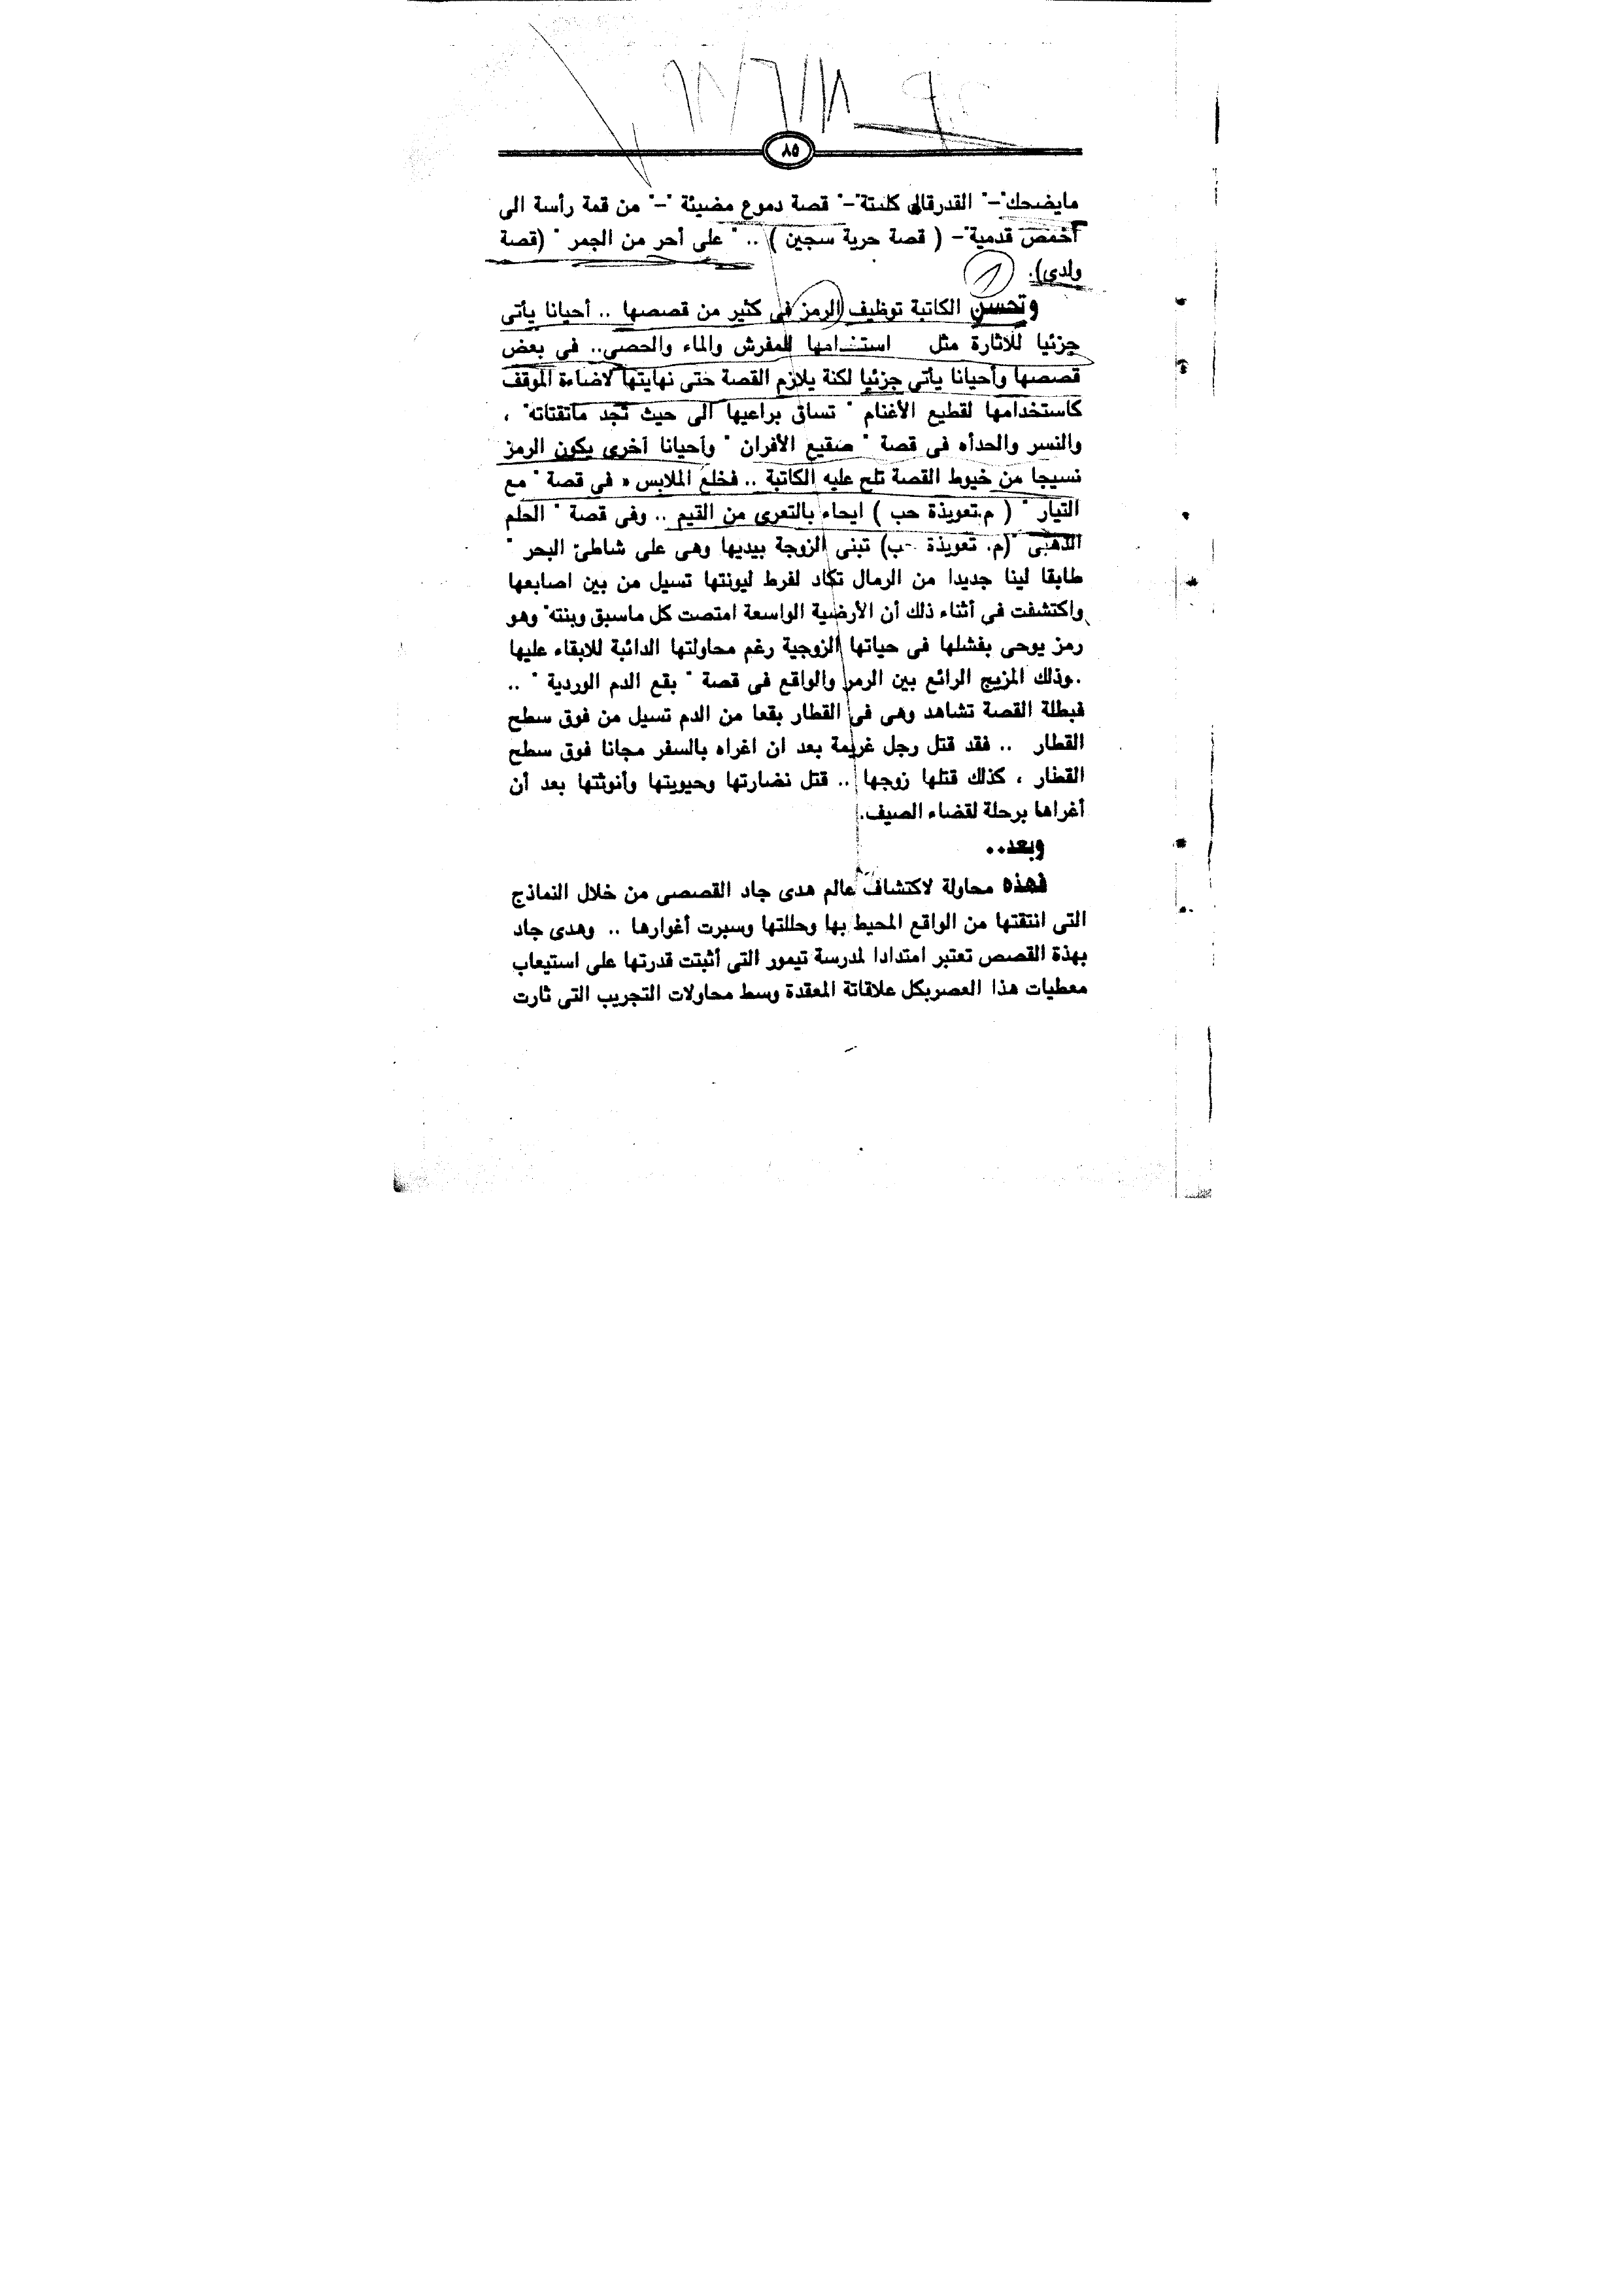 ٨٥
مايضحك"–" القدرقال كلمتة"–" قصة دموع مضيئة "–" من قمة رأسة الى
أخمص قدمية"– ( قصة حرية سجين ) .. " على أحر من الجمر " (قصة
ولدى).
وتحسن الكاتبة توظيف الرمز فى كثير من قصصها .. أحيانا يأتى
جزئيا للاثارة مثل استخدامها للمفرش والماء والحصى.. فى بعض
قصصها وأحيانا يأتى جزئيا لكنة يلازم القصة حتى نهايتها لاضاءة الموقف
كاستخدامها لقطيع الأغنام " تساق براعيها الى حيث تجد ماتقتاته" ،
والنسر والحدأه فى قصة " صقيع الأفران " وأحيانا أخرى يكون الرمز
نسيجا من خيوط القصة تلح عليه الكاتبة .. فخلع الملابس « فى قصة " مع
التيار " ( م.تعويذة حب ) ايحاء بالتعرى من القيم .. وفى قصة " الحلم
الذهبى "(م. تعويذة حب) تبنى الزوجة بيديها وهى على شاطئ البحر "
طابقا لينا جديدا من الرمال تكاد لفرط ليونتها تسيل من بين اصابعها
واكتشفت فى أثناء ذلك أن الأرضية الواسعة امتصت كل ماسبق وبنته" وهو
رمز يوحى بفشلها فى حياتها الزوجية رغم محاولتها الدائبة للابقاء عليها
.وذلك المزيج الرائع بين الرمز والواقع فى قصة " بقع الدم الوردية " ..
فبطلة القصة تشاهد وهى فى القطار بقعا من الدم تسيل من فوق سطح
القطار .. فقد قتل رجل غريمة بعد ان اغراه بالسفر مجانا فوق سطح
القطار ، كذلك قتلها زوجها .. قتل نضارتها وحيويتها وأنوثتها بعد أن
أغراها برحلة لقضاء الصيف.
وبعد..
فهذه محاولة لاكتشاف عالم هدى جاد القصصى من خلال النماذج
التى انتقتها من الواقع المحيط بها وحللتها وسبرت أغوارها .. وهدى جاد
بهذة القصص تعتبر امتدادا لمدرسة تيمور التى أثبتت قدرتها على استيعاب
معطيات هذا العصربكل علاقاتة المعقدة وسط محاولات التجريب التى ثارت